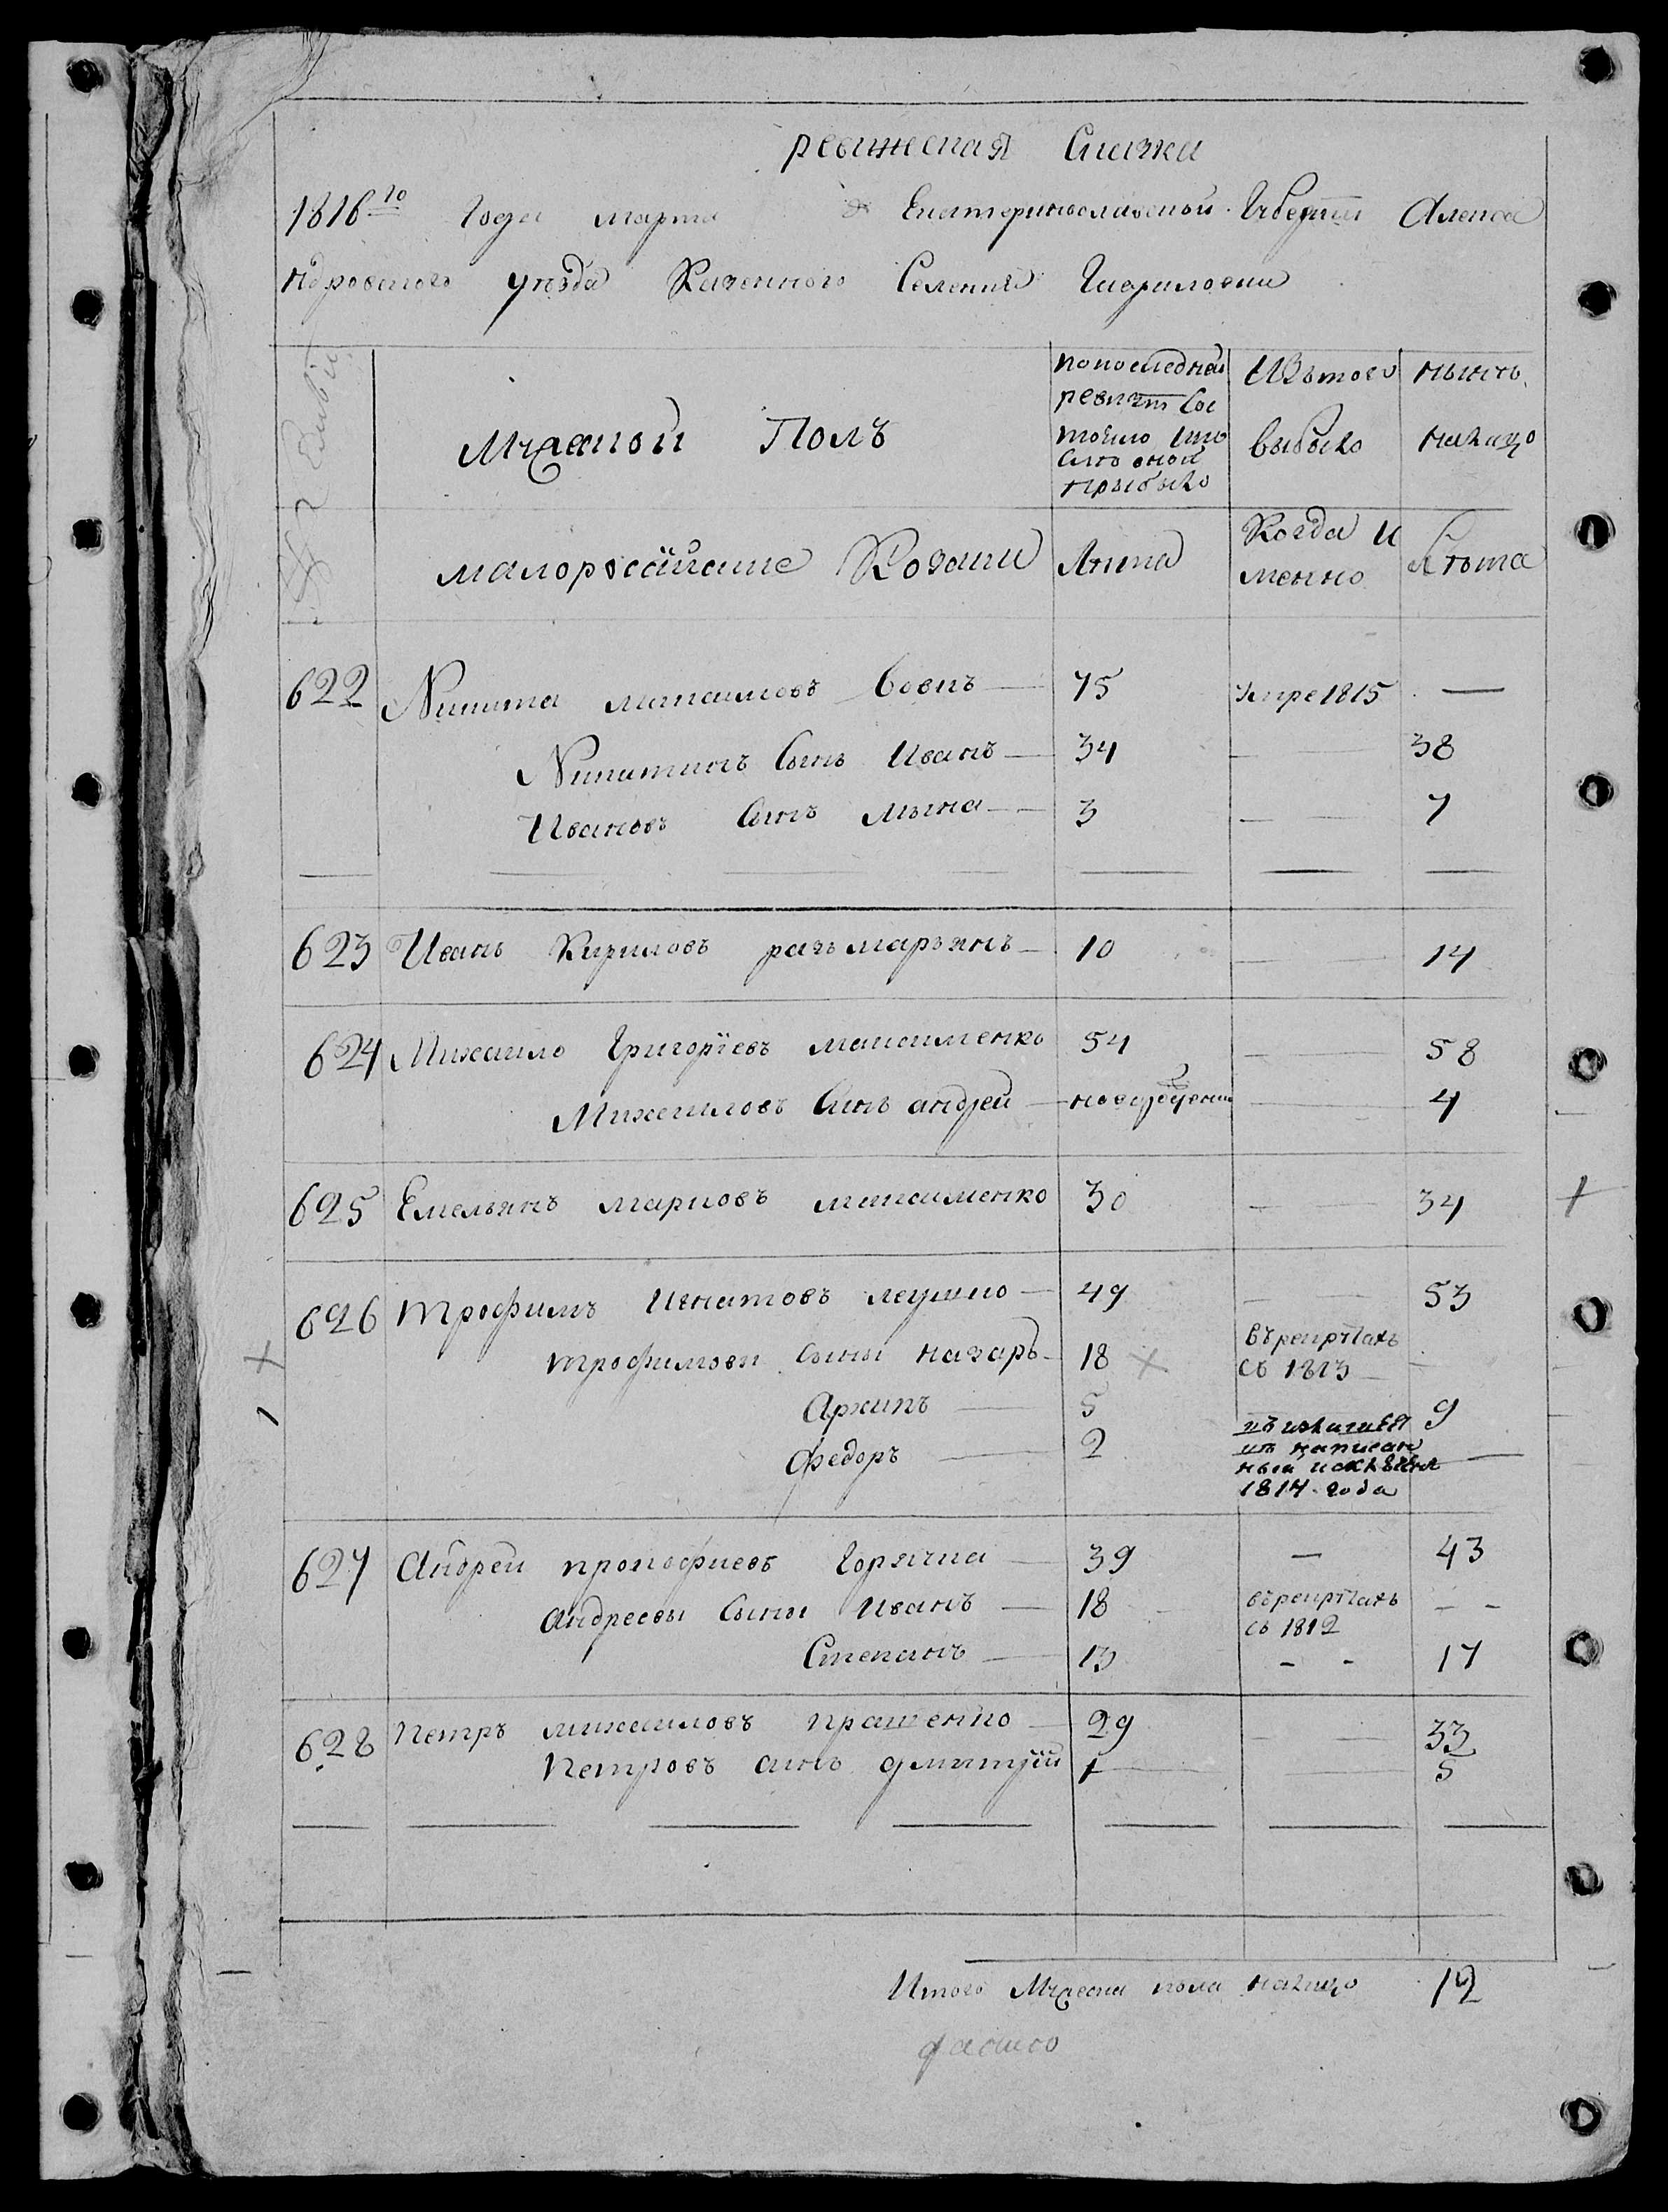 ревижская Сказки
1816го Года марта Екатеринославской Губернии Алекса
ндровского уезда Казенного Селения Гавриловки
Мужской Полъ
попоследней
ревизіи Сос
тояло
после оной
прибыло
Изътого
выбыло
нынѣ
налицо
малоросcійские Козаки
Лѣта
Когда И
менно
Лѣта
622 Никита михайловъ Вовкъ — 75 умре 1815 —
Никитинъ Сынъ Иванъ — 34 — 38
Ивановъ Сынъ — 3 — 7
623 Иванъ Кириловъ — 10 — 14
624 Михайло Григоріевъ максименко 54 — 58
Михайловъ Сынъ андрей — новорожденный — 4
625 Емельянъ марковъ максименко 30 — 34
626 трофимъ Игнатовъ — 49 — 53
трофимови сыны назаръ — 18 въ рекрутахъ
съ 1813 —
Архипъ — 5 9
федоръ — 2
написан
ный
1814 года
—
627 Андрей прокофиевъ Горячка — 39 — 43
андреевы Сыны Иванъ — 18 въ рекрутахъ
съ 1812 - -
Степанъ — 13 - - 17
628 Петръ михайловъ — 29 — 33
Петровъ сынъ дмитрій 1 — 5
Итого Мужеска пола налицо 12